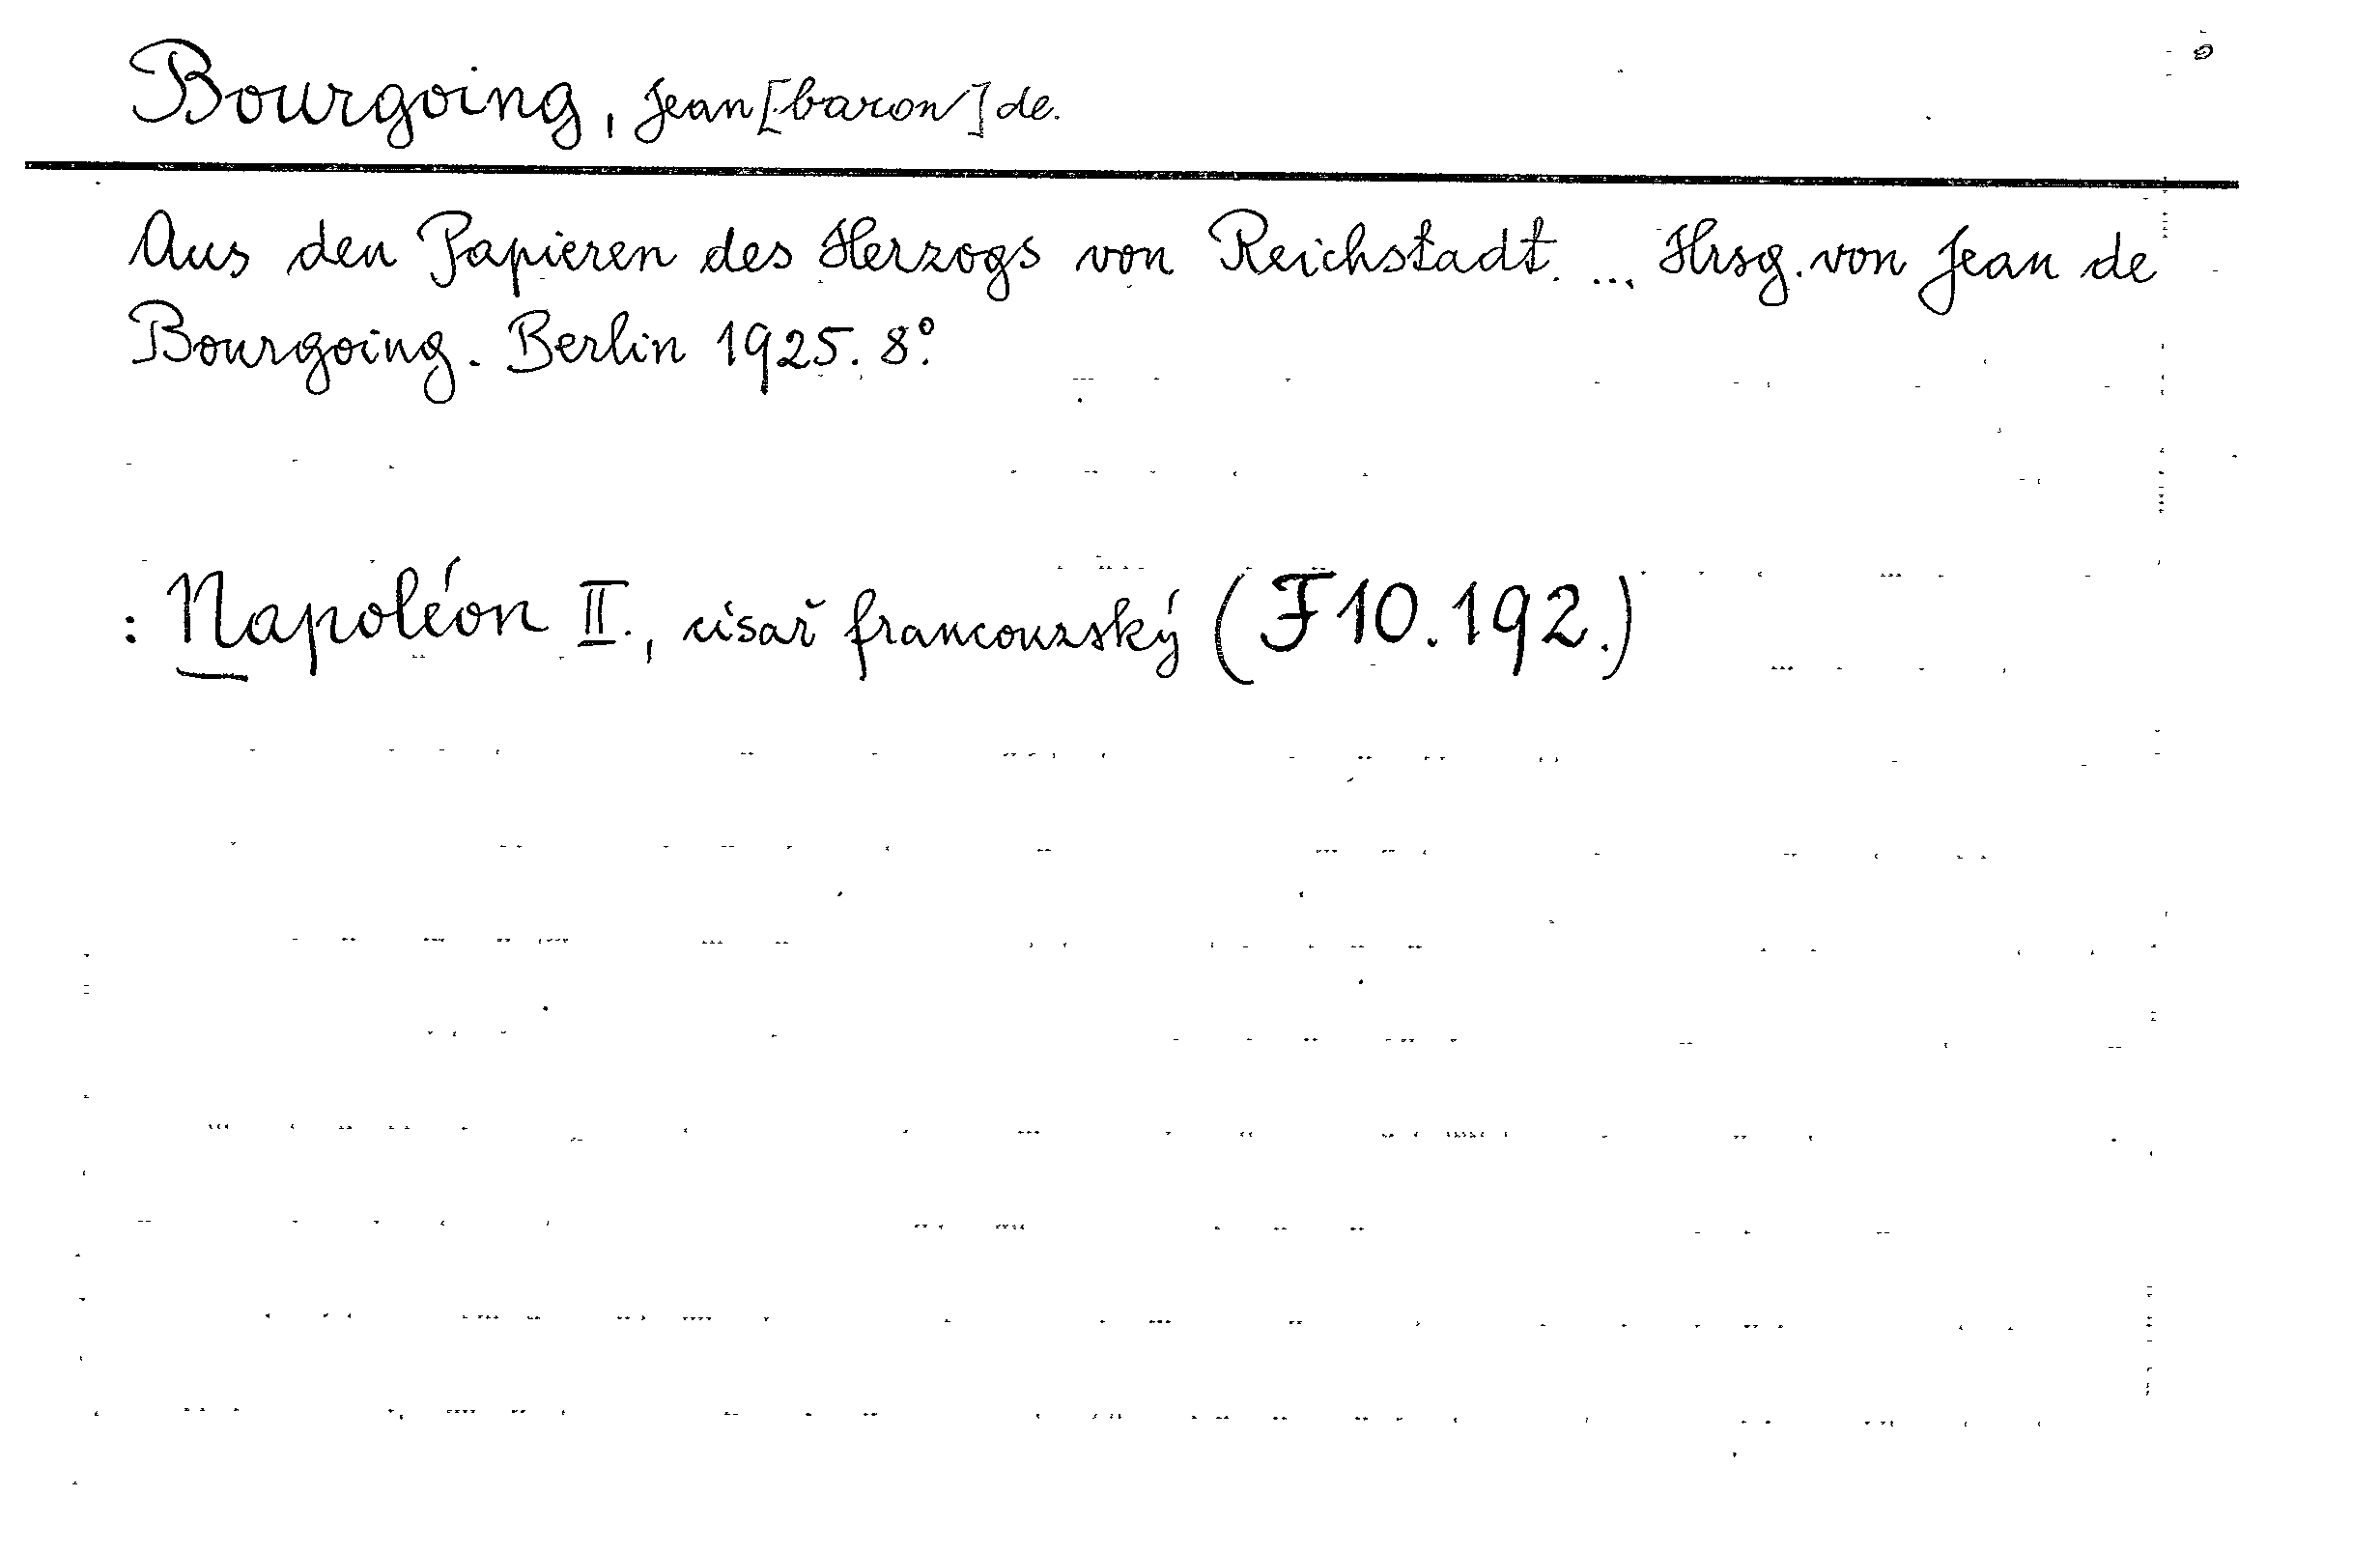 Bourgoing, Jean [baron] de.
Aus den Papieren des Herzogs von Reichstadt. ... Hrsg. von Jean de
Bourgoing. Berlin 1925. 8°.
: Napoléon II., císař francouzský (F 10.192.)